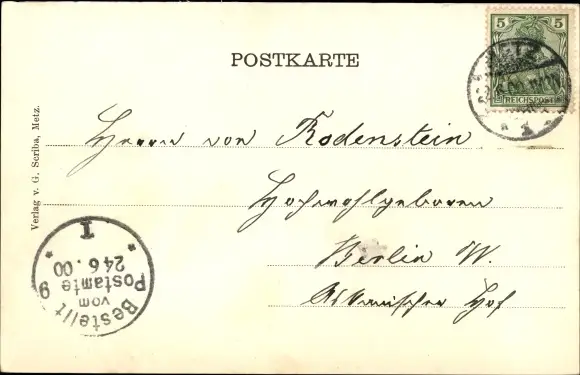 POSTKARTE
5
REICHSPOST
METZ
Verlag v. G. Scriba, Metz.
Herrn von Rodenstein
Hochwohlgeboren
Berlin W.
Askanischer Hof
Bestellt
vom
Postamte 9
24 6. 00
* I *